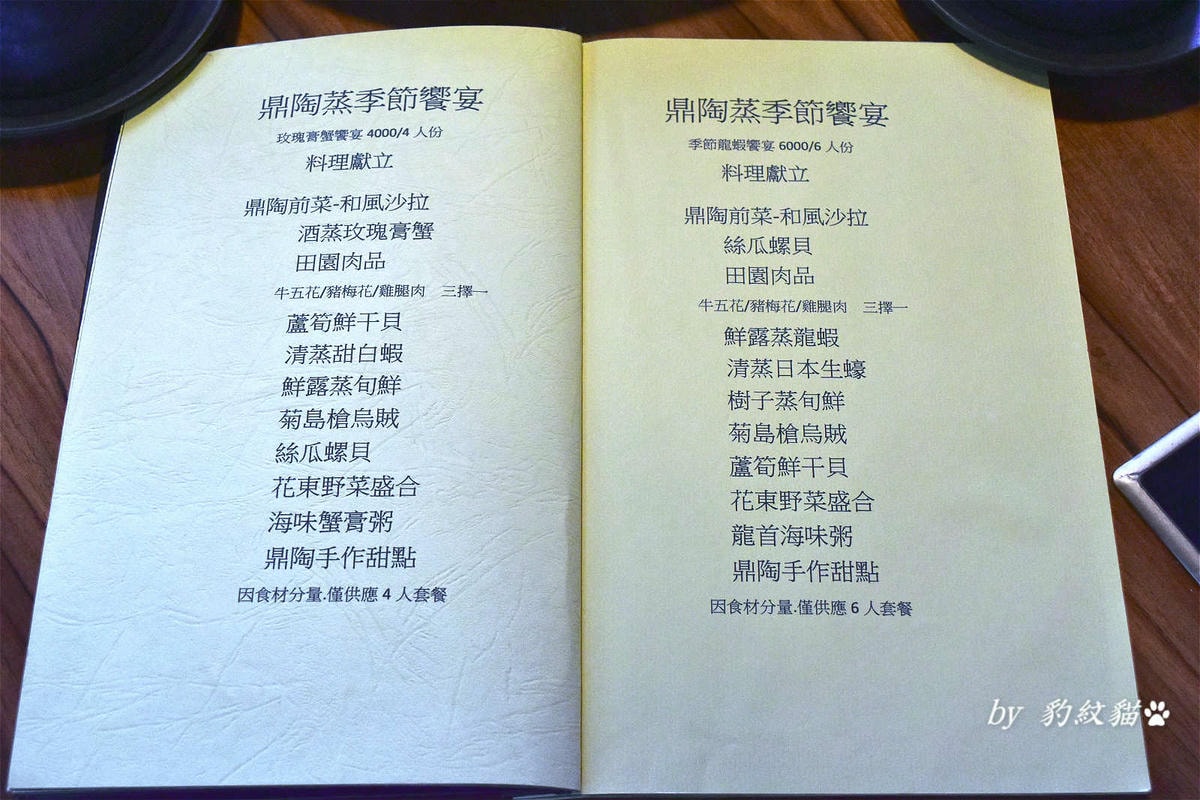 鼎陶蒸季節饗宴
玫瑰膏蟹饗宴 4000/4 人份
料理獻立
鼎陶前菜-和風沙拉
酒蒸玫瑰膏蟹
田園肉品
牛五花/豬梅花/雞腿肉 三擇一
蘆筍鮮干貝
清蒸甜白蝦
鮮露蒸旬鮮
菊島槍烏賊
絲瓜螺貝
花東野菜盛合
海味蟹膏粥
鼎陶手作甜點
因食材分量.僅供應 4 人套餐
鼎陶蒸季節饗宴
季節龍蝦饗宴 6000/6 人份
料理獻立
鼎陶前菜-和風沙拉
絲瓜螺貝
田園肉品
牛五花/豬梅花/雞腿肉 三擇一
鮮露蒸龍蝦
清蒸日本生蠔
樹子蒸旬鮮
菊島槍烏賊
蘆筍鮮干貝
花東野菜盛合
龍首海味粥
鼎陶手作甜點
因食材分量.僅供應 6 人套餐
by 豹紋貓